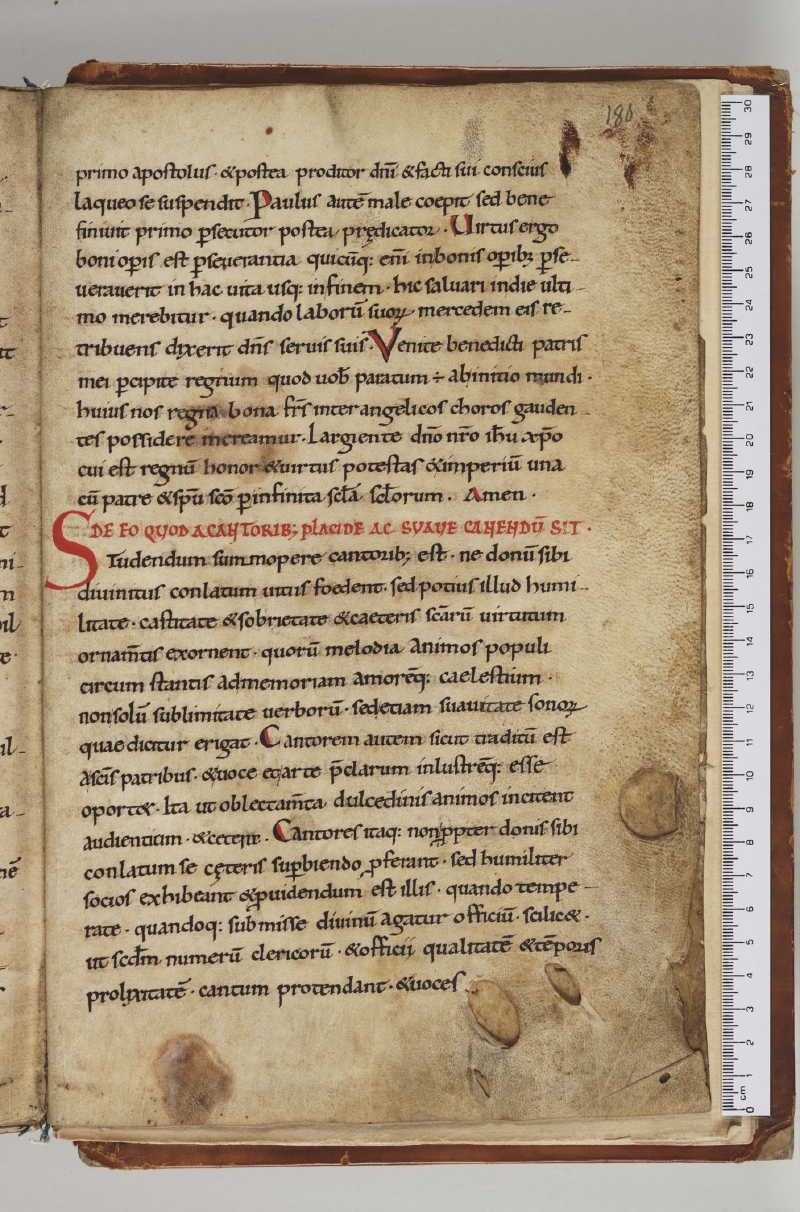 180
primo apostolus· &postea proditor dn̄i &facti sui conscius
laqueo se suspendit· Paulus autē male coepit sed bene
finiuit primo ꝑsecutor postea prędicator· Uirtus ergo
boni oꝑis est ꝑseuerantia quicūq: eni̅ inbonis oꝑibꝫ ꝑse-
uerauerit in hac uita usq: infinem· hic saluari indie ulti-
mo merebitur· quando laborū suoꝝ mercedem eis re-
tribuens dixerit dn̄s seruis suis· Venite benedicti patris
mei ꝑcipite regnum quod uob̄ paratum ÷ abinitio mundi·
huius nos regna bona fr̄s inter angelicos choros gauden-
tes possidere mereamur· Largiente dn̄o nr̄o ih̄u xp̄o
cui est regnū honor &uirtus potestas &imperiū una
cū patre &sp̄u sc̄o ꝑ infinita scl̄a scl̄orum. Amen·
DE EO QUOD A CANTORIB; PLACIDE AC SUAUE CANENDŪ SIT·
Studendum summopere cantorib; est· ne donū sibi
diuinitus conlatum uitiis foedent· sed potius illud humi-
litate· castitate &sobrietate &caeteris sc̄arū uirtutum
ornam̄tis exornent· quorū melodia animos populi
circum stantis admemoriam amorēq: caelestium·
nonsolū sublimitate uerborū· sedetiam suauitate sonoꝝ
quae dicitur erigat· Cantorem autem sicut traditū est
asc̄is patribus· &uoce et arte p̄clarum inlustrēq: esse
oport&· Ita ut oblectam̄ta dulcedinis animos incitent
audientium· &cetere· Cantores itaq: non ꝓpter donis sibi
conlatum se cęteris suꝑbiendo p̄ferant· sed humiliter
socios exhibeant &ꝓuidendum est illis· quando tempe-
rate· quandoq: submisse diuinū agatur officiū· scilic&·
ut scd̄m numerū clericorū· &officii qualitatē &tēporis
prolixitatē· cantum protendant· &uoces